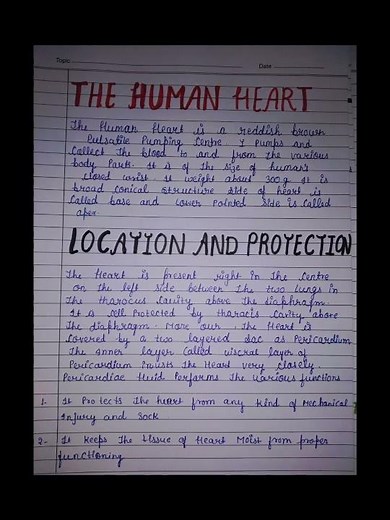 Topic
Date
THE HUMAN HEART
The Human Heart is a reddish brown
Pulsatile Pumping Centre Y Pumps and
Collect The blood to and from The various
body Parts. It is of the size of human's
closed wrist. It weight about 300g It is
broad conical structure site of heart is
Called base and lower Pointed side is Called
apex
LOCATION AND PROTECTION
The Heart is present right in The Centre
on the left side between The two lungs in
The tharocus Cavity above The diaphragm
It is cell Protected by tharacis Cavity above
The diaphragm. More our The Heart is
Covered by a two layered sac as Pericardium
The inner layer Called viscral layer of
Pericardium the Heart very closely.
Pericardiac fluid Performs The various functions
1. It Protects The heart from any kind of Mechanical
Injury and Sock
2- It keeps The tissue of Heart Moist from proper
functioning